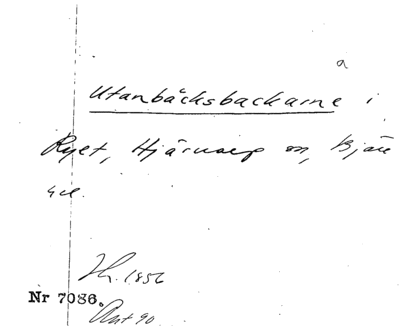 a
Utanbäcksbackarne i
Ryet, Hjärnarp sn, Bjäre
hd.
1856
Nr 7086.
Ant 90